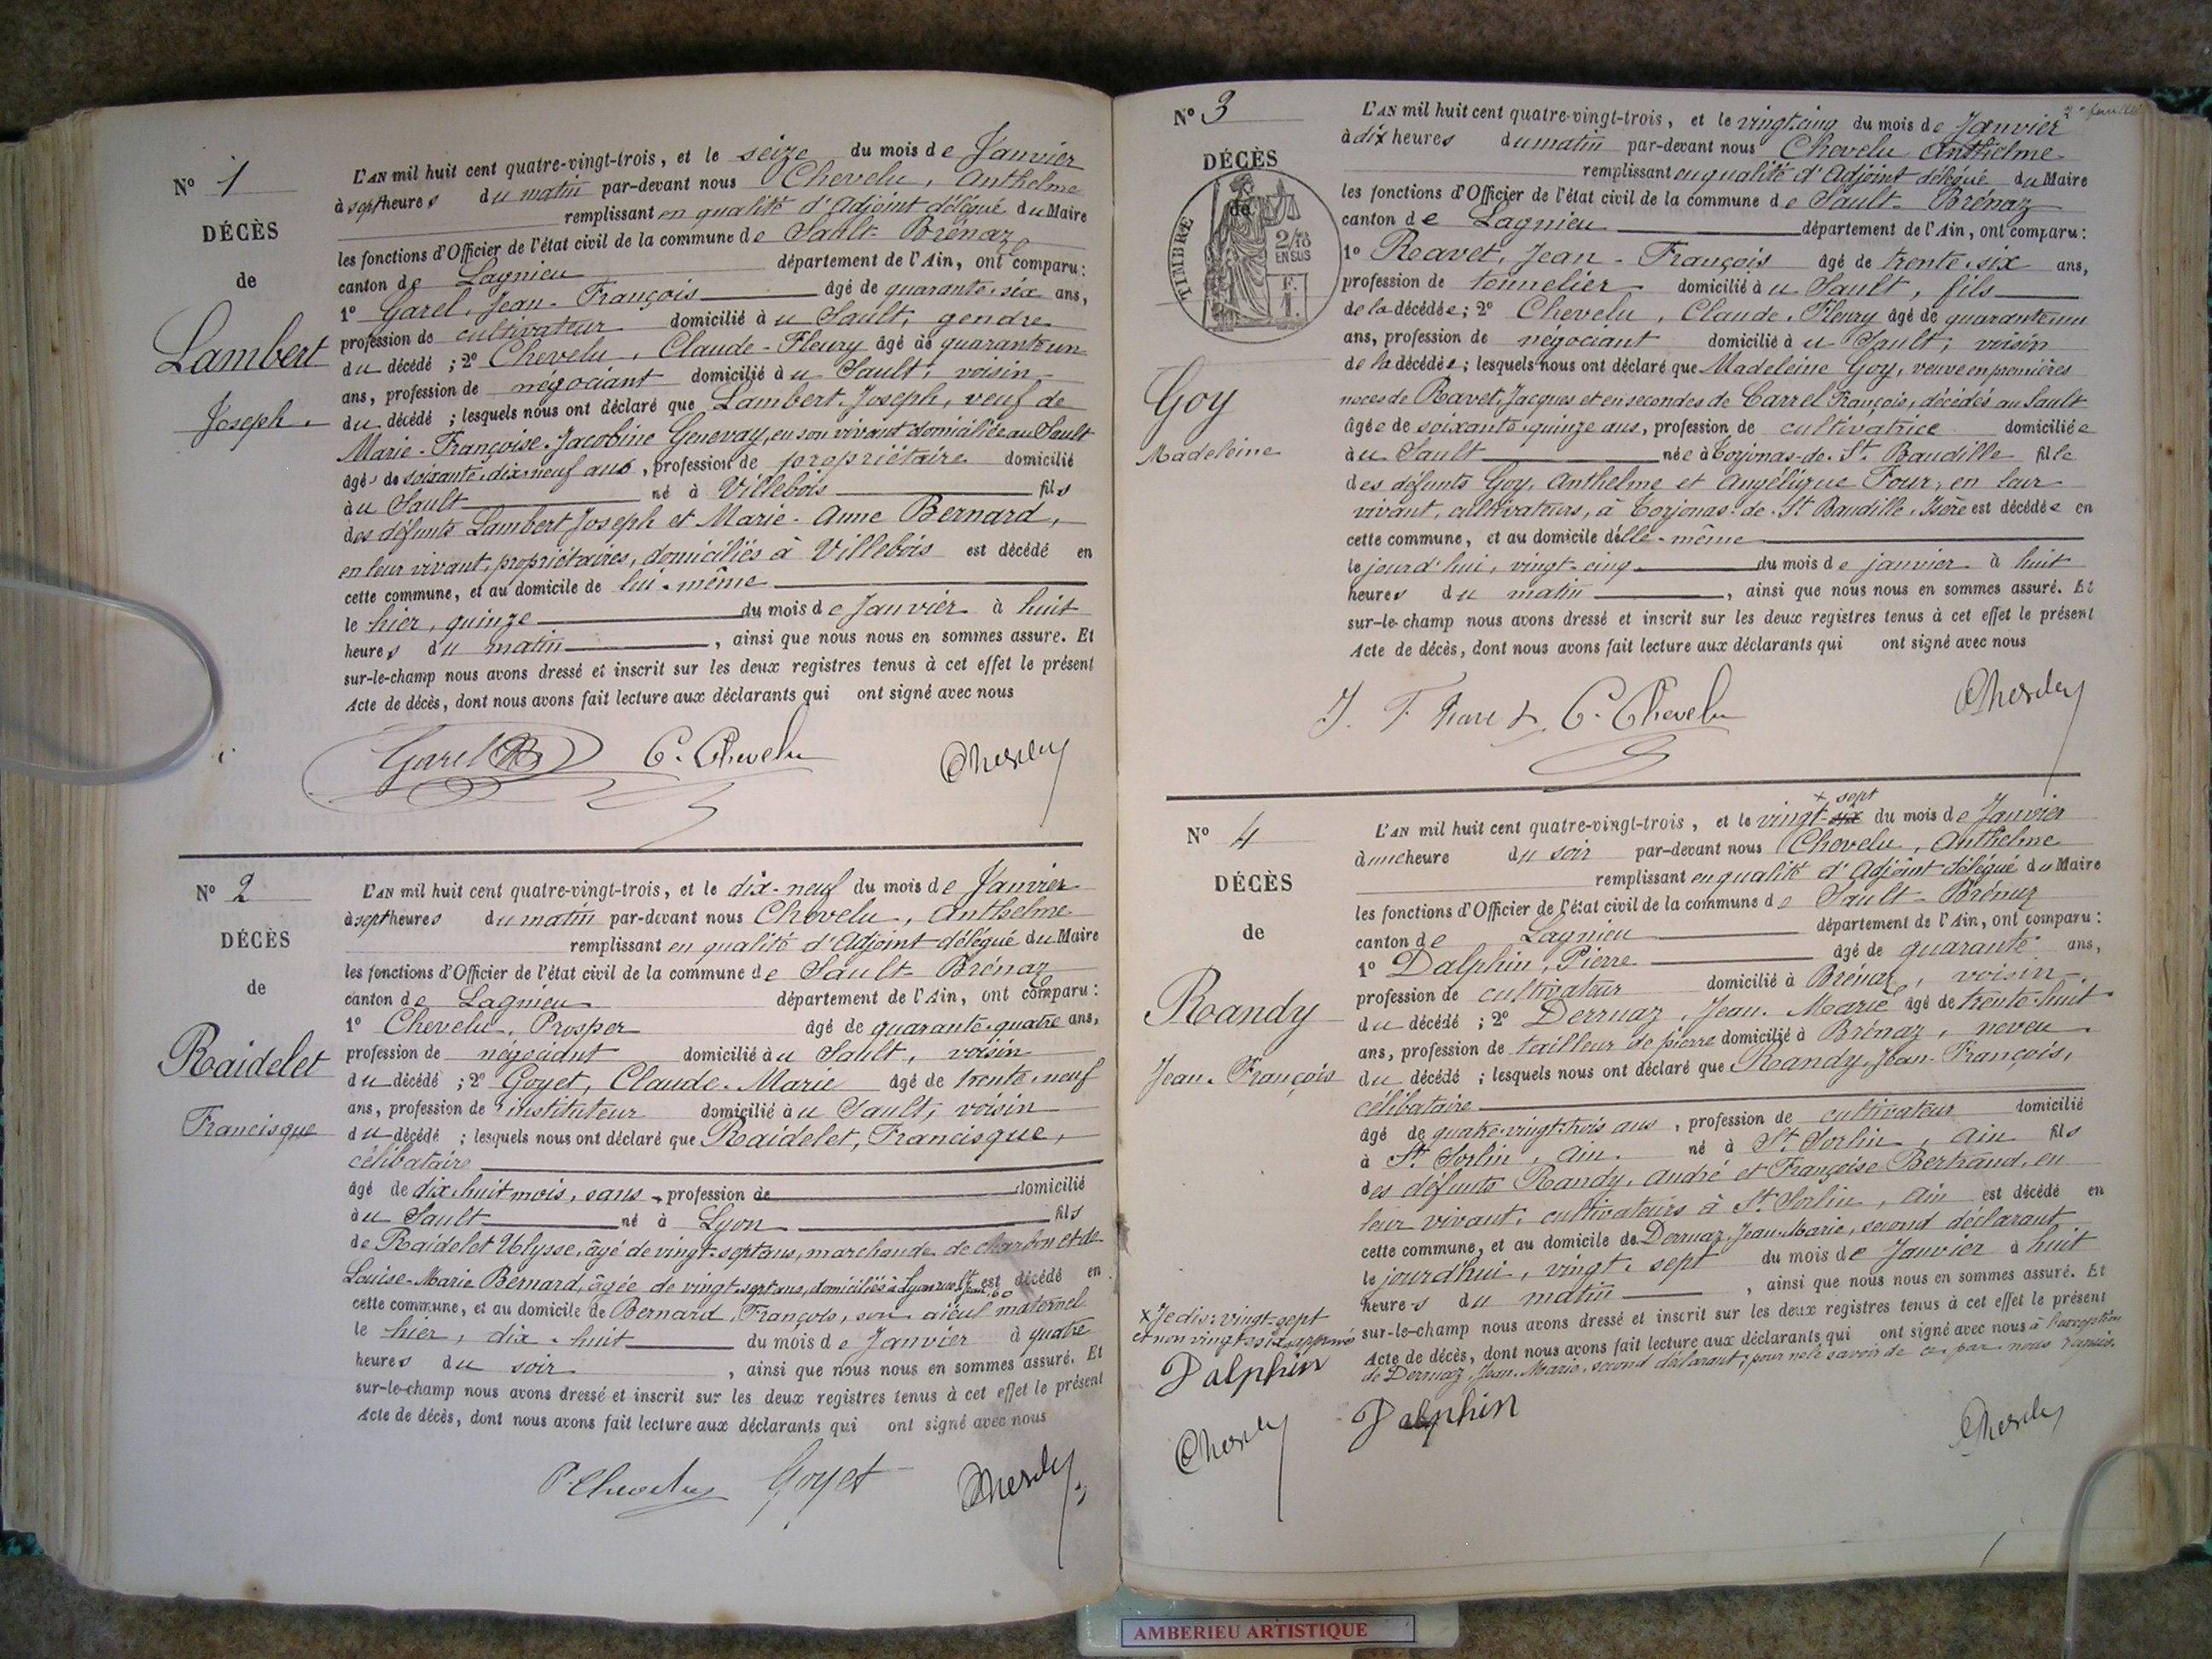 N° 1
DÉCÈS
de
Lambert
Joseph.
L'AN mil huit cent quatre-vingt-trois, et le seize du mois de Janvier
à sept heures du matin par-devant nous Chevelu, Anthelme
remplissant en qualité d'Adjoint délégué du Maire
les fonctions d'Officier de l'état civil de la commune de Sault-Brénaz
canton de Lagnieu département de l'Ain, ont comparu:
1° Garel, Jean-François âgé de quarante-six ans,
profession de cultivateur domicilié à u Sault, gendre
du décédé ; 2° Chevelu, Claude-Fleury âgé de quarante un
ans, profession de négociant domicilié à u Sault, voisin
du décédé ; lesquels nous ont déclaré que Lambert, Joseph, veuf de
Marie-Françoise-Jacobine Genevay, en son vivant domiciliée au Sault
âgé de soixante-dix-neuf ans, profession de propriétaire domicilié
à u Sault né à Villebois fils
des défunts Lambert Joseph et Marie-Anne Bernard,
en leur vivant, propriétaires, domiciliés à Villebois est décédé en
cette commune, et au domicile de lui-même
le hier, quinze du mois de Janvier à huit
heures du matin, ainsi que nous nous en sommes assuré. Et
sur-le-champ nous avons dressé et inscrit sur les deux registres tenus à cet effet le présent
Acte de décès, dont nous avons fait lecture aux déclarants qui ont signé avec nous
Garel C. Chevelu Chevelu
N° 2
DÉCÈS
de
Raidelet
Francisque
L'AN mil huit cent quatre-vingt-trois, et le dix-neuf du mois de Janvier
à sept heures du matin par-devant nous Chevelu, Anthelme
remplissant en qualité d'Adjoint délégué du Maire
les fonctions d'Officier de l'état civil de la commune de Sault-Brénaz
canton de Lagnieu département de l'Ain, ont comparu:
1° Chevelu, Prosper âgé de quarante-quatre ans,
profession de négociant domicilié à u Sault, voisin
du décédé ; 2° Goyet, Claude-Marie âgé de trente-neuf
ans, profession de instituteur domicilié à u Sault, voisin
du décédé ; lesquels nous ont déclaré que Raidelet, Francisque,
célibataire
âgé de dix-huit mois, sans profession de domicilié
à u Sault né à Lyon fils
de Raidelet Ulysse, âgé de vingt-sept ans, marchande de charbon et de
Louise-Marie Bernard, âgée de vingt-sept ans, domiciliés à Lyon rue St Jean, 60 est décédé en
cette commune, et au domicile de Bernard, François, son aïeul maternel
le hier, dix-huit du mois de Janvier à quatre
heures du soir, ainsi que nous nous en sommes assuré. Et
sur-le-champ nous avons dressé et inscrit sur les deux registres tenus à cet effet le présent
Acte de décès, dont nous avons fait lecture aux déclarants qui ont signé avec nous
P. Chevelu Goyet Chevelu
2e feuillet
N° 3
DÉCÈS
de
TIMBRE
2/10
EN SUS
F.
1.
Goy
Madeleine
L'AN mil huit cent quatre-vingt-trois, et le vingt-cinq du mois de Janvier
à dix heures du matin par-devant nous Chevelu Anthelme
remplissant en qualité d'Adjoint délégué du Maire
les fonctions d'Officier de l'état civil de la commune de Sault-Brénaz
canton de Lagnieu département de l'Ain, ont comparu:
1° Ravet, Jean-François âgé de trente-six ans,
profession de tonnelier domicilié à u Sault, fils
de la décédée ; 2° Chevelu, Claude-Fleury âgé de quarante un
ans, profession de négociant domicilié à u Sault, voisin
de la décédée ; lesquels nous ont déclaré que Madeleine Goy, veuve en premières
noces de Ravet, Jacques et en secondes de Carrel François, décédés au Sault
âgée de soixante-quinze ans, profession de cultivatrice domiciliée
à u Sault née à Torjonas-de-St Baudille fille
des défunts Goy, Anthelme et Angélique Four, en leur
vivant, cultivateurs, à Torjonas-de-St Baudille, Isère est décédée en
cette commune, et au domicile d'elle-même
le jourd'hui, vingt-cinq du mois de janvier à huit
heures du matin, ainsi que nous nous en sommes assuré. Et
sur-le-champ nous avons dressé et inscrit sur les deux registres tenus à cet effet le présent
Acte de décès, dont nous avons fait lecture aux déclarants qui ont signé avec nous
J. F. Ravet C. Chevelu Chevelu
N° 4
DÉCÈS
de
Randy
Jean-François
L'AN mil huit cent quatre-vingt-trois, et le vingt-six x sept du mois de Janvier
à une heure du soir par-devant nous Chevelu, Anthelme
remplissant en qualité d'Adjoint délégué du Maire
les fonctions d'Officier de l'état civil de la commune de Sault-Brénaz
canton de Lagnieu département de l'Ain, ont comparu:
1° Dalphin, Pierre âgé de quarante ans,
profession de cultivateur domicilié à Brénaz, voisin
du décédé ; 2° Derruaz, Jean-Marie âgé de trente-huit
ans, profession de tailleur de pierre domicilié à Brénaz, neveu
du décédé ; lesquels nous ont déclaré que Randy, Jean-François,
célibataire
âgé de quatre-vingt-trois ans, profession de cultivateur domicilié
à St Sorlin, Ain. né à St Sorlin, Ain fils
des défunts Randy, André et Françoise Bertrand, en
leur vivant, cultivateurs à St Sorlin, Ain est décédé en
cette commune, et au domicile de Derruaz, Jean-Marie, second déclarant
le jourd'hui, vingt-sept du mois de Janvier à huit
heures du matin, ainsi que nous nous en sommes assuré. Et
sur-le-champ nous avons dressé et inscrit sur les deux registres tenus à cet effet le présent
Acte de décès, dont nous avons fait lecture aux déclarants qui ont signé avec nous à l'exception
de Derruaz, Jean-Marie, second déclarant, pour ne le savoir de ce par nous requis.
x Je dis: vingt-sept
et non vingt-six approuvé
Dalphin
Chevelu
Dalphin Chevelu
AMBERIEU ARTISTIQUE